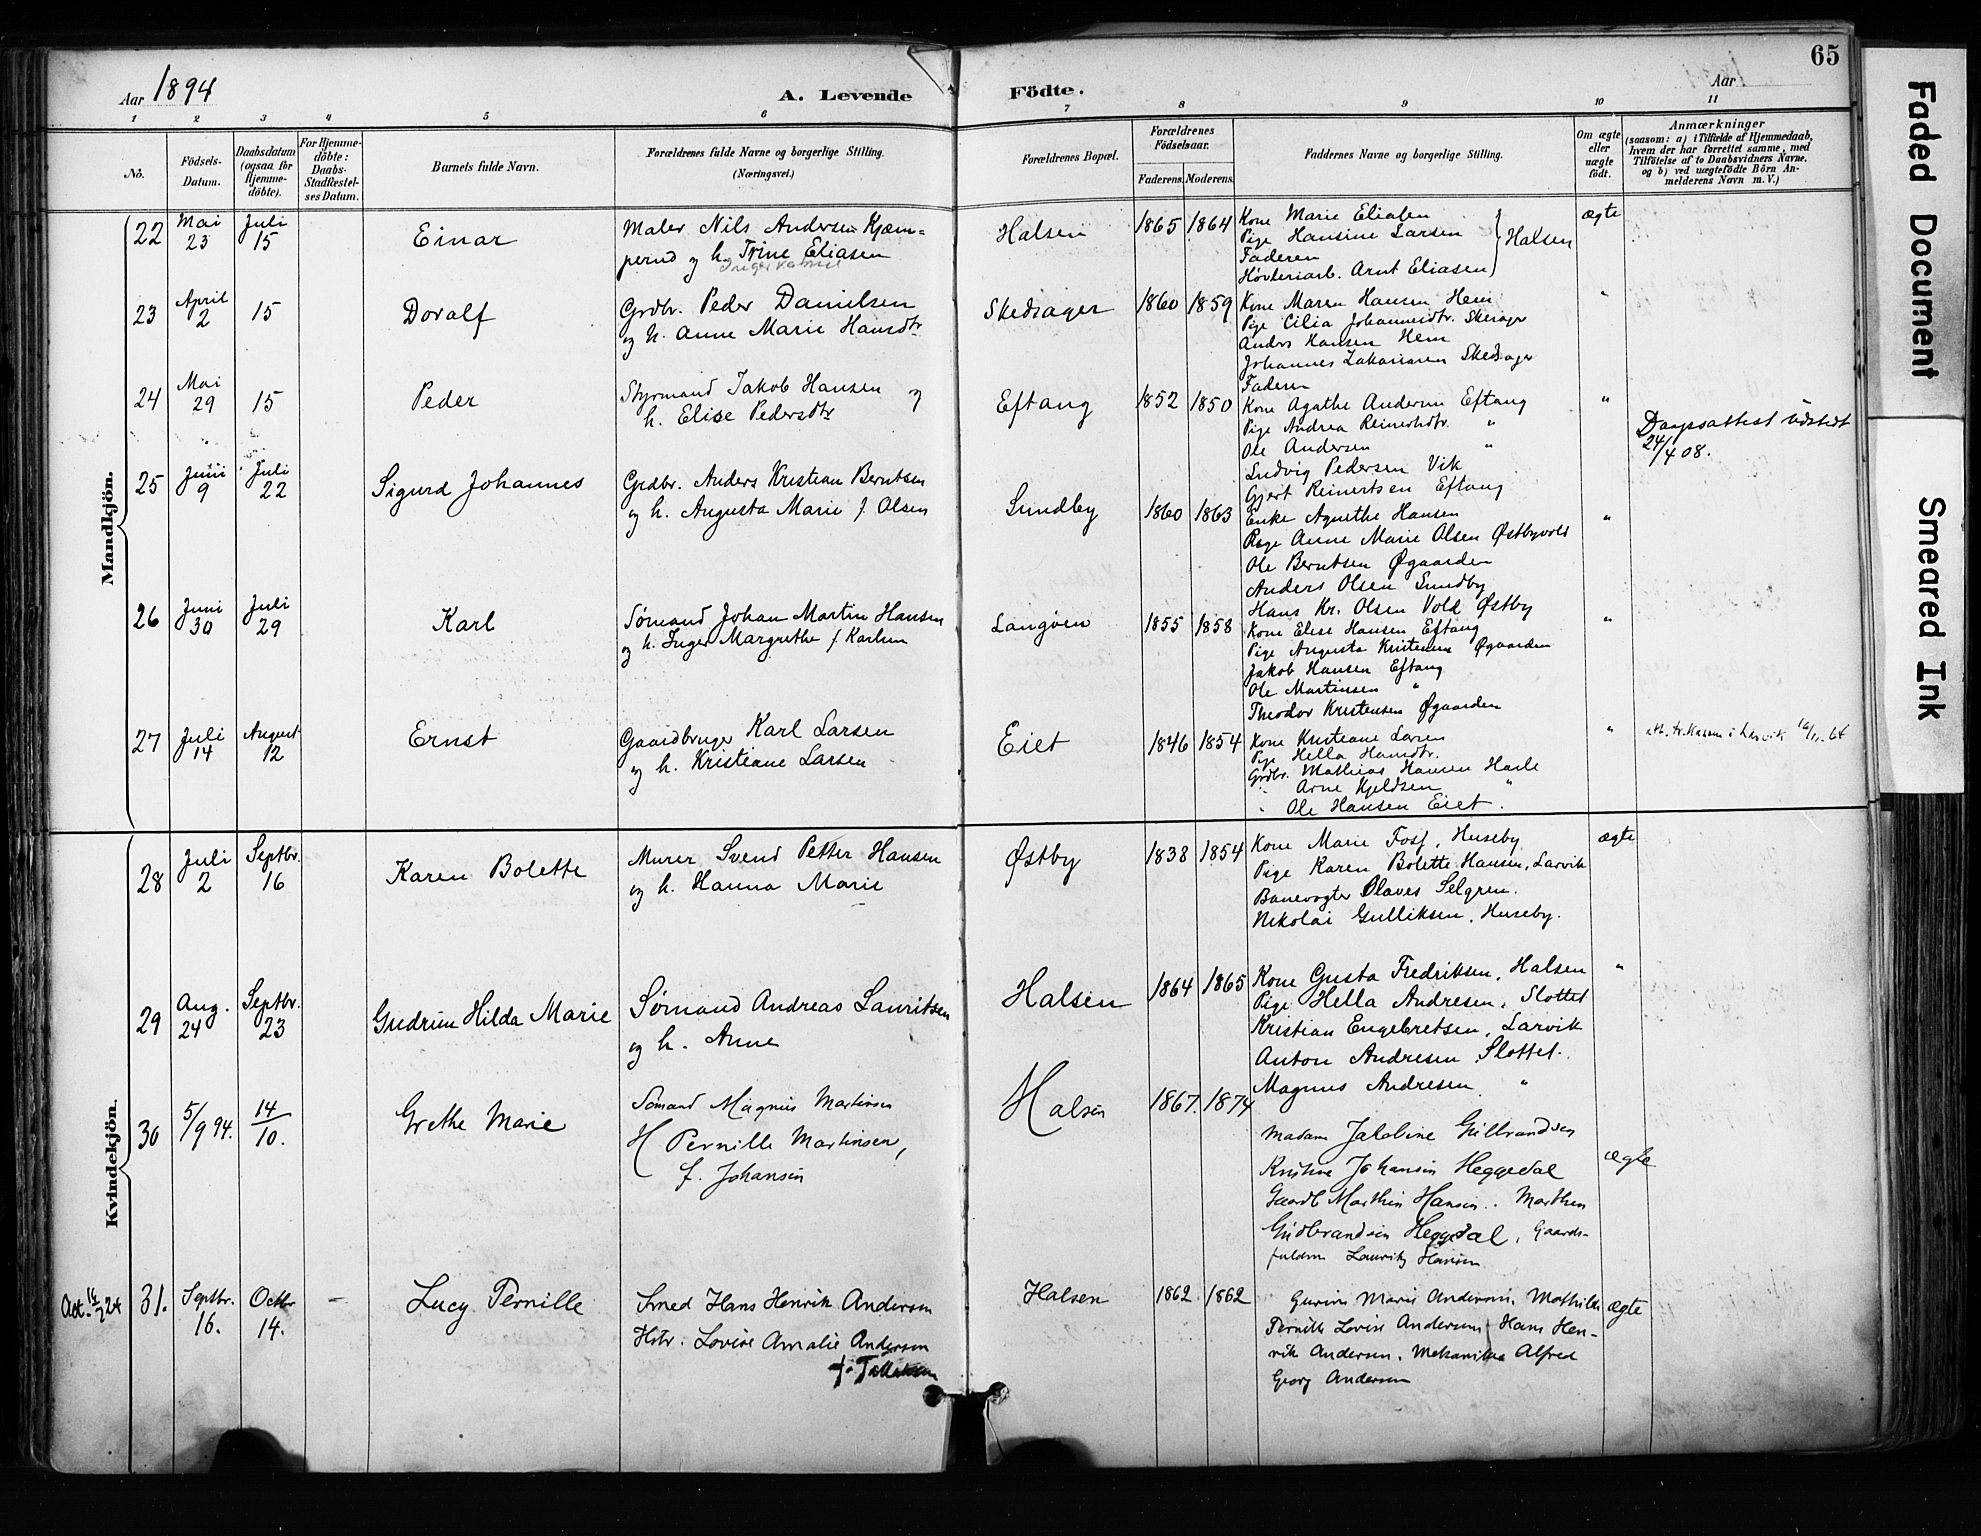 65
Aar 1894
A. Levende
Födte.
Aar
1 2 3 4 5 6 7 8 9 10 11
No.
Födsels-Datum.
Daabsdatum (ogsaa for Hjemmedöbte).
For Hjemmedöbte: Daabs-Stadfæstelses Datum.
Barnets fulde Navn.
Forældrenes fulde Navne og borgerlige Stilling.
(Næringsvei.)
Forældrenes Bopæl.
Forældrenes Födselsaar.
Faderens. Moderens.
Faddernes Navne og borgerlige Stilling.
Om ægte eller uægte födt.
Anmærkninger
(saasom: a) i Tilfælde af Hjemmedaab, hvem der har forrettet samme, med Tilföielse af to Daabsvidners Navne, og b) ved uægtefödte Börn Anmelderens Navn m. V.)
Mandkjön.
22 Mai 23 Juli 15 Einar
Maler Nils Andersen Kjæm=
perud og h. Trine Eliasen
Halsen 1865 1864
Kone Marie Eliasen
Pige Hansine Larsen
Faderen
Høvleriarb. Arnt Eliasen
Halsen
ægte
23 April 2 15 Doralf
Grdbr. Peder Danielsen
og h. Anne Marie Hansdtr
Skedsager 1860 1859
Kone Maren Hansen Hem
Pige Cilia Johannesdtr. Skeiager
Anders Hansen Hem
Johannes Zakariasen Skedsager
Faderen
"
24 Mai 29 15 Peder
Styrmand Jakob Hansen og
h. Elise Pedersdtr
Eftang 1852 1850
Kone Agathe Andersen Eftang
Pige Andrea Reinertsdtr. "
Ole Andersen "
Ludvig Pedersen Vik
Gjert Reinertsen Eftang
"
Daapsattest udstedt
24/4 08.
25 Juni 9 Juli 22 Sigurd Johannes
Grdbr. Anders Kristian Berntsen
og h. Augusta Marie f. Olsen
Sundby 1860 1863
Enke Agnethe Hansen
Pige Anne Marie Olsen Østbyvold
Ole Berntsen Øgaarden
Anders Olsen Sundby
Hans Kr. Olsen Vold Østby
"
26 Juni 30 Juli 29 Karl
Sømand Johan Martin Hansen
og h. Inger Margrethe f. Karlsen
Langøen 1855 1858
Kone Elise Hansen Eftang
Pige Augusta Kristensen Øgaarden
Jakob Hansen Eftang
Ole Martinsen "
Theodor Kristensen Øgaarden
"
27 Juli 14 August 12 Ernst
Gaardbruger Karl Larsen
og h. Kristiane Larsen
Eiet 1846 1854
Kone Kristiane Larsen
Pige Hella Hansdtr.
Grdbr. Mathias Hansen Hasle
" Arne Kjeldsen "
" Ole Hansen Eiet.
"
Kvindekjön.
28 Juli 2 Septbr. 16 Karen Bolette
Murer Svend Petter Hansen
og h. Hanna Marie
Østby 1838 1854
Kone Marie Foss, Huseby
Pige Karen Bolette Hansen, Larvik
Banevogter Olaves Selgren.
Nikolai Gulliksen, Huseby.
ægte
29 Aug. 24 Septbr. 23 Gudrun Hilda Marie
Sømand Andreas Lauritsen
og h. Anne
Halsen 1864 1865
Kone Gusta Fredriksen, Halsen
Pige Hella Andresen, Slottet
Kristian Engebretsen, Larvik
Anton Andresen Slottet.
Magnus Andresen "
"
30 5/9 94. 14/10. Grethe Marie
Sømand Magnus Martinsen
H Pernille Martinsen,
f. Johansen
Halsen 1867. 1874
Madame Jakobine Gulbrandsen
Kristine Johansen Heggedal
Gaardb Marthin Hansen. Marthin
Gudbrandsen Heggedal, Gaards-
Lauritz Hansen
ægte
31. Septbr. 16. Octbr 14. - Lucy Pernille
Smed Hans Henrik Andersen
Hstr. Lovise Amalie Andersen
f. Tollefsen
Halsen 1862 1862
Marie Andersen, Mathilde
Pernille Lovise Andersen Hans Hen-
rik Andersen, Mekaniker Alfred
Georg Andersen
ægte
Faded Document
Smeared Ink